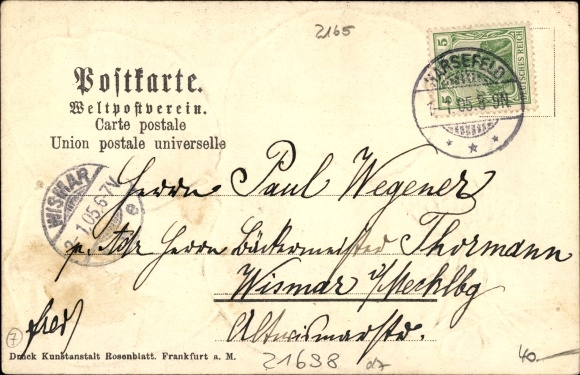 2165
5 5
DEUTSCHES REICH
HARSEFELD
1.05.8-9N
Postkarte.
Weltpostverein.
Carte postale
Union postale universelle
WISMAR
2.1.05.6-7N
e
Herrn Paul Wegener
p. Adr Herrn Bäckermeister Thormann
Wismar i/Mecklbg
Altwismarstr.
fred
7
Druck Kunstanstalt Rosenblatt. Frankfurt a. M.
21638
40.-